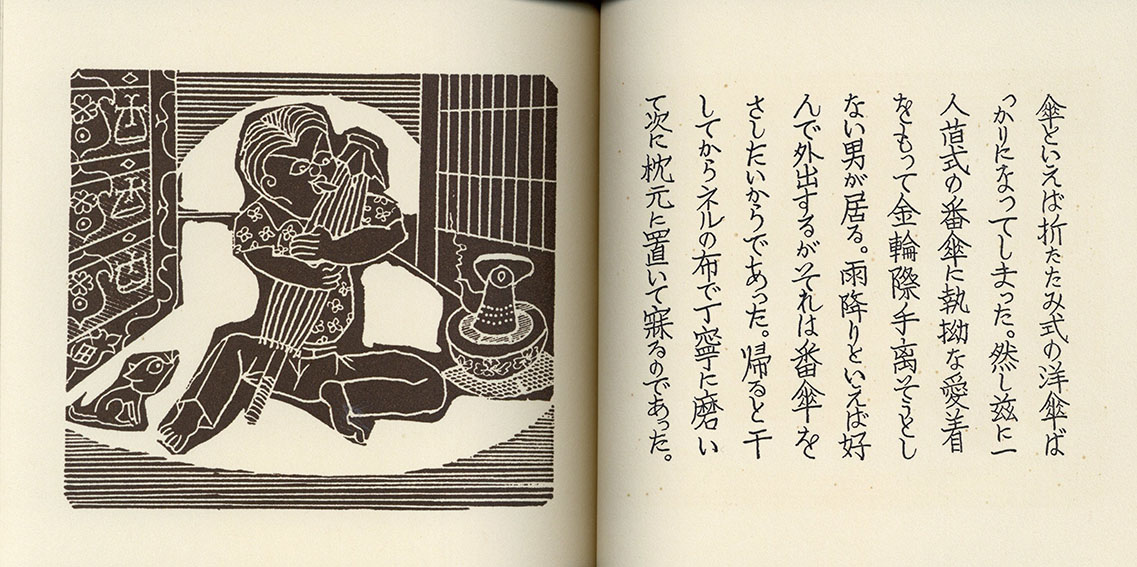 傘といえば折たたみ式の洋傘ば
っかりになってしまった。然し茲に一
人道式の番傘に執拗な愛着
をもって金輪際手离そうとし
ない男が居る。雨降りといえば好
んで外出するがそれは番傘を
さしたいからであった。帰ると干
してからネルの布で丁寧に磨い
て次に枕元に置いて寐るのであった。